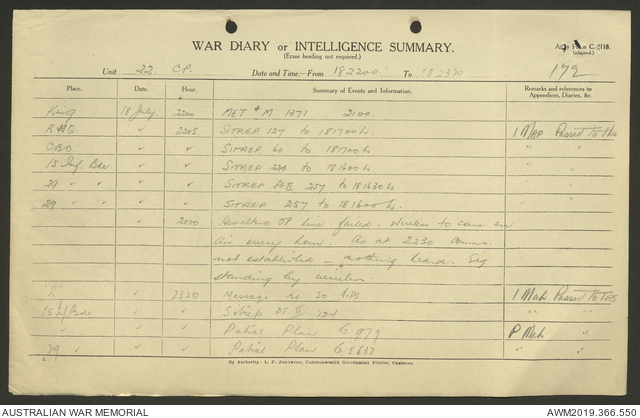 WAR DIARY or INTELLIGENCE SUMMARY.
(Erase heading not required.)
Army Form C.2118.
(adapted.)
Unit 22 CP. Date and Time.—From 182200 To 182320
172
Place. Date. Hour. Summary of Events and Information. Remarks and references to Appendices, Diaries, &c.
18 July 2200 MET # M 1271 2100.
RHQ ✓ 2205 SITREP 127 to 181700L. 1 Passed to
CBO ✓ ✓ SITREP 60 to 181700L. " "
15 Inf. Bde ✓ ✓ SITREP 224 to 181600L " "
29 " " ✓ ✓ SITREP Pt II 257 to 181630L
29 " " ✓ ✓ SITREP 257 to 181600L.
✓ OP line failed. Wireless to come on
air every hour. As at 2230 Comms
not established – nothing heard. Sig
standing by
✓ 2320 Message re 20 1 Passed to
15 Bde ✓ Sitrep PT II 224 " "
✓ Patrol Plan
29 ✓ Patrol Plan " "
By Authority: L. F. Johnston, Commonwealth Government Printer, Canberra.
AUSTRALIAN WAR MEMORIAL
AWM2019.366.550